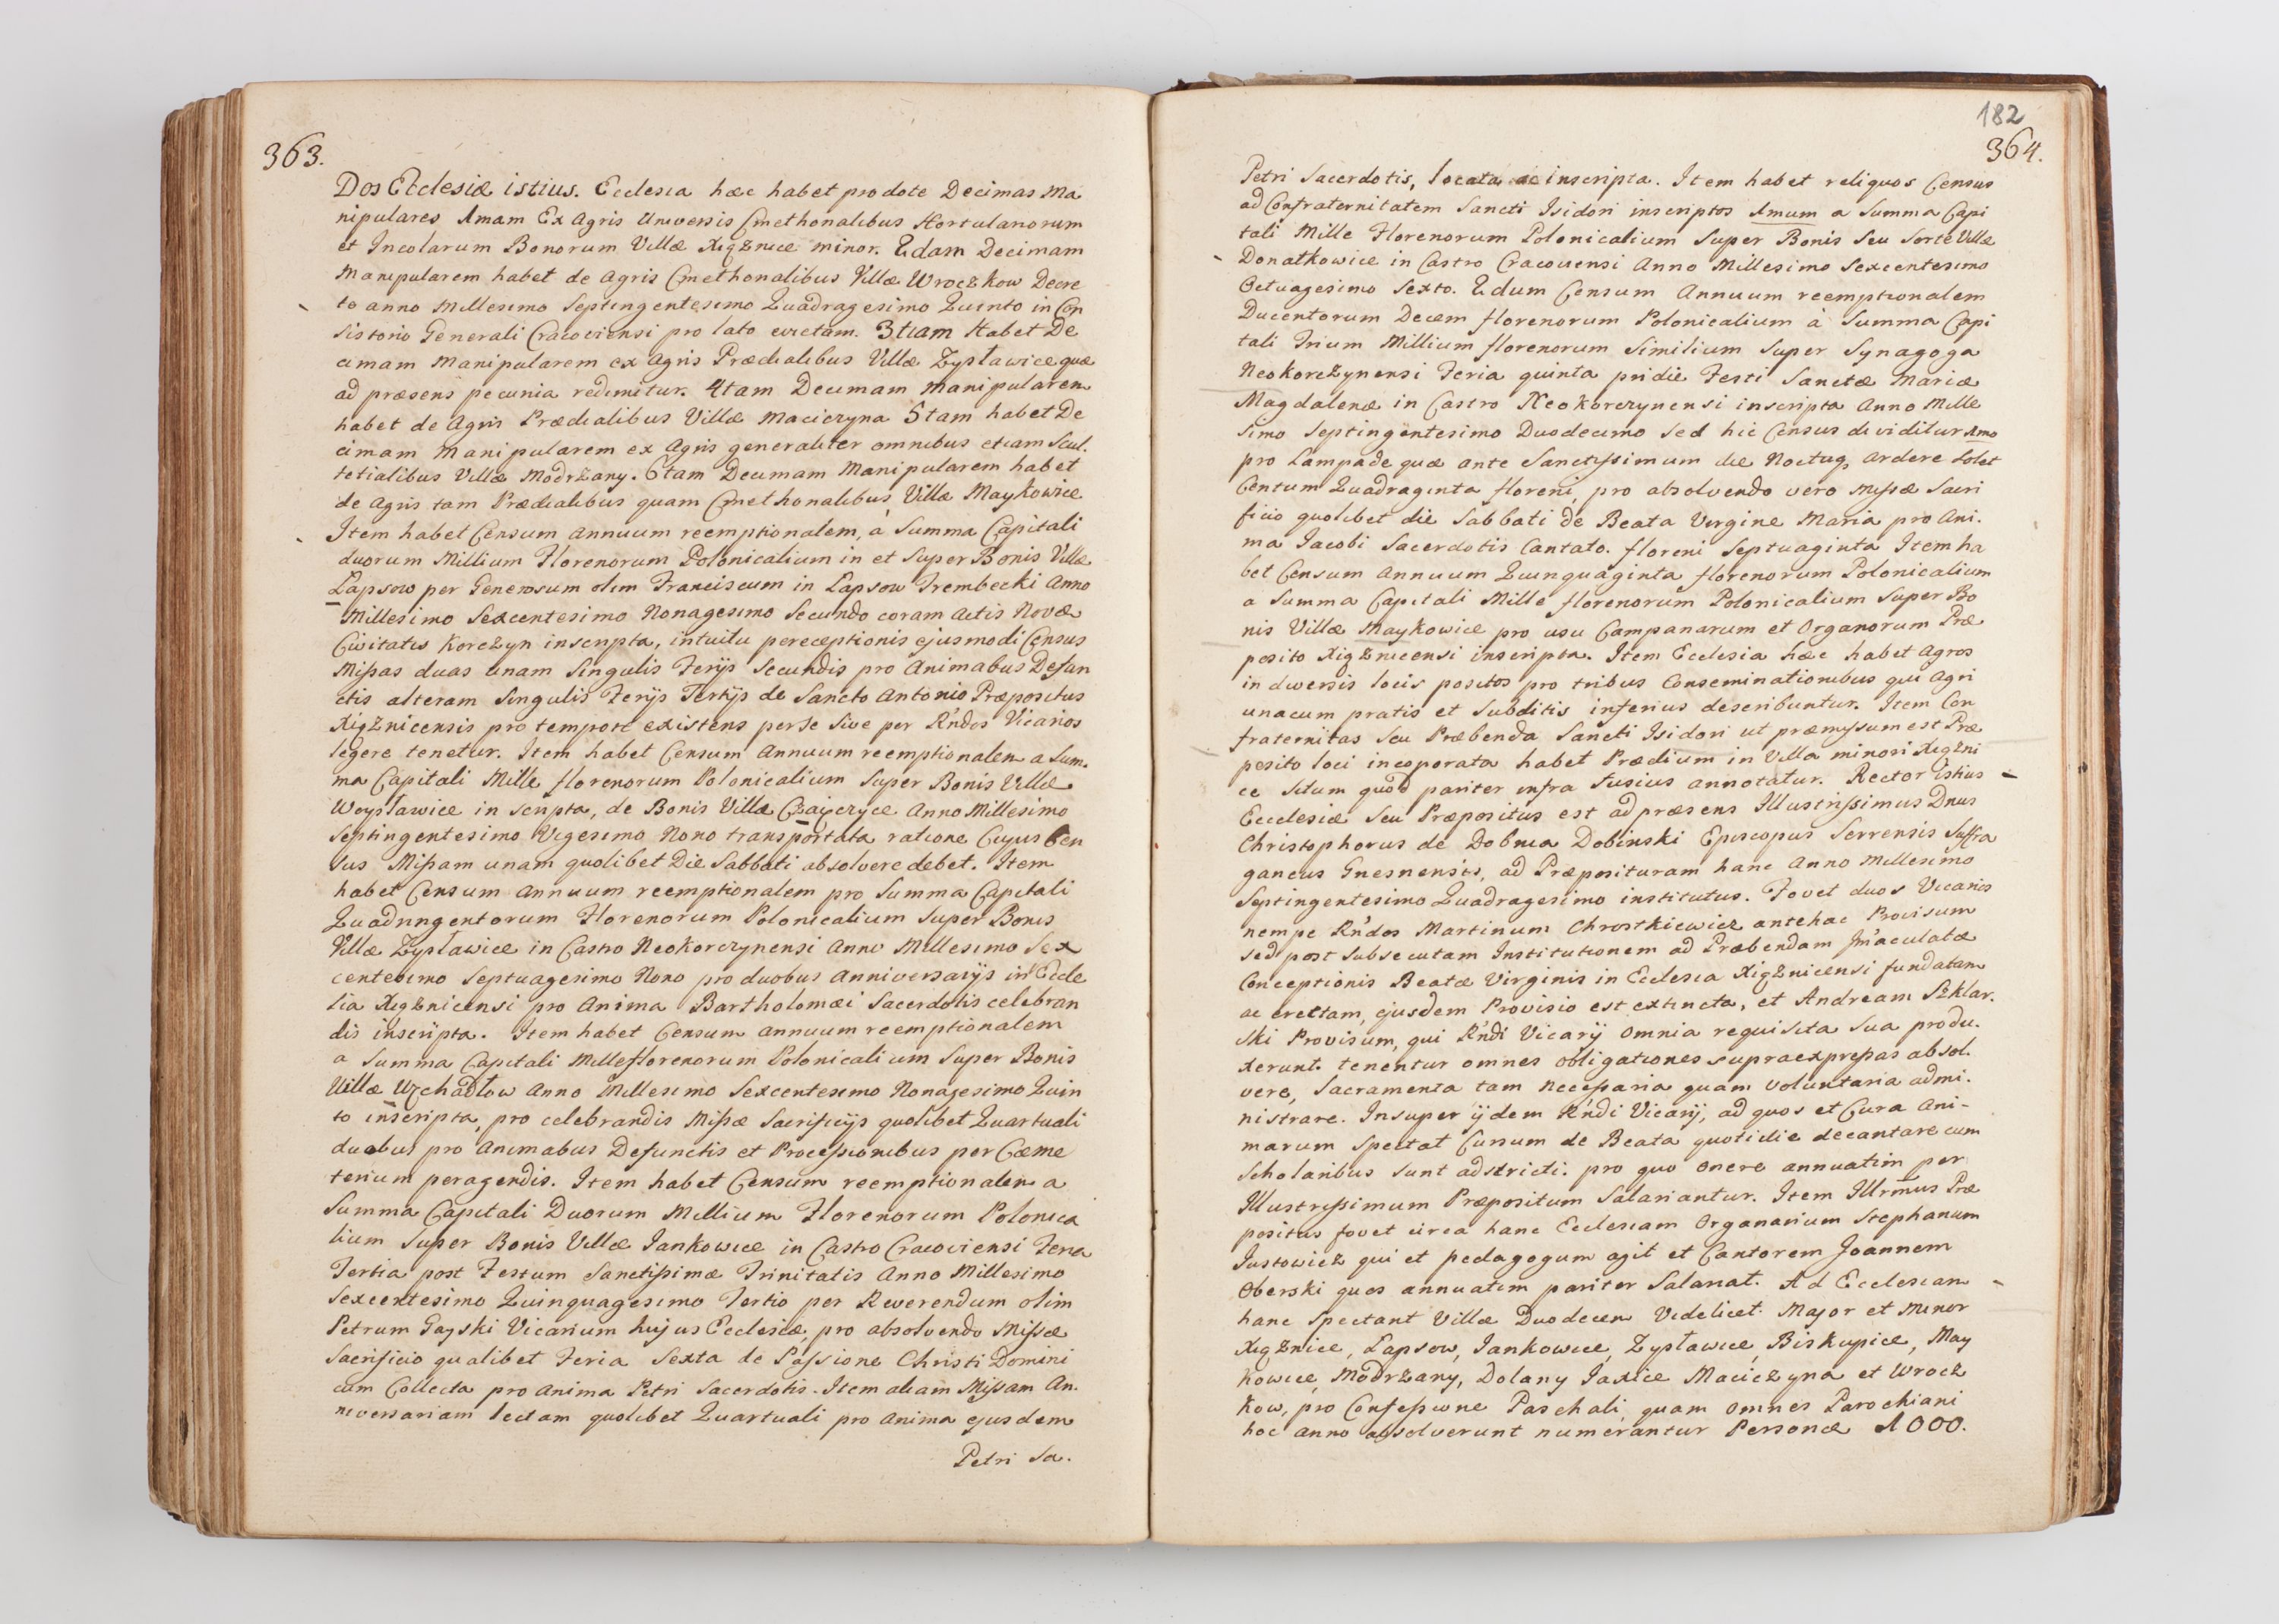 363.
Dos Ecclesiæ istius. Ecclesia hæc habet pro dote Decimas Ma
nipulares 1mam Ex Agris Universis Cmethonalibus Hortulanorum
et Incolarum Bonorum Villæ Xiąznice minor. 2dam Decimam
Manipularem habet de Agris Cmethonalibus Villæ Wroczkow Decre
to anno Millesimo Septingentesimo Quadragesimo Quinto in Con
sistorio Generali Cracoviensi pro lato evictam. 3tiam Habet De
cimam Manipularem ex Agris Prædialibus Villæ Zysławice quæ
ad præsens pecunia redimitur. 4tam Decimam Manipularem
habet de Agris Prædialibus Villæ Macieczyna 5tam habet De
cimam Manipularem ex Agris generaliter omnibus etiam Scul.
tetialibus Villæ Modrzany. 6tam Decimam Manipularem habet
de Agris tam Prædialibus quam Cmethonalibus Villæ Maykowice
Item habet Censum Annuum reemptionalem, à Summa Capitali
duorum Millium Florenorum Polonicalium in et Super Bonis Villæ
Lapsow per Generosum olim Franciscum in Lapsow Trembecki Anno
Millesimo Sexcentesimo Nonagesimo Secundo coram Actis Novæ
Civitatis Korczyn inscripta, intuitu perceptionis ejusmodi Census
Missas duas unam Singulis Ferijs Secundis pro Animabus Defun
ctis alteram Singulis Ferijs Tertijs de Sancto Antonio Præpositus
Xiąznicensis pro tempore existens per se sive per Rndos Vicarios
legere tenetur. Item habet Censum Annuum reemptionalem a Sum.
ma Capitali Mille florenorum Polonicalium Super Bonis Villæ
Woysławice in scripta, de Bonis Villæ Czaięczyce Anno Millesimo
Septingentesimo Vigesimo Nono transportata ratione Cujus Cen
sus Missam unam quolibet Die Sabbati absolvere debet. Item
habet Censum Annuum reemptionalem pro Summa Capitali
Quadringentorum Florenorum Polonicalium Super Bonis
Villæ Zysławice in Castro Neokorczynensi Anno Millesimo Sex
centesimo Septuagesimo Nono pro duobus Anniversarijs in Eccle
sia Xiąznicensi pro Anima Bartholomæi Sacerdotis celebran
dis inscripta. Item habet Censum annuum reemptionalem
a Summa Capitali Milleflorenorum Polonicalium Super Bonis
Villæ Uzchadłow Anno Millesimo Sexcentesimo Nonagesimo Quin
to inscripta, pro celebrandis Missæ Sacrificijs quolibet Quartuali
duobus pro Animabus Defunctis et Processionibus per Cæme
terium peragendis. Item habet Censum reemptionalem a
Summa Capitali Duorum Millium Florenorum Polonica
lium Super Bonis Villæ Jankowice in Castro Cracoviensi Feria
Tertia post Festum Sanctissimæ Trinitatis Anno Millesimo
Sexcentesimo Quinquagesimo Tertio per Reverendum olim
Petrum Gayski Vicarium hujus Ecclesiæ, pro absolvendo Missæ
Sacrificio qualibet Feria Sexta de Passione Christi Domini
cum Collecta pro Anima Petri Sacerdotis. Item aliam Missam An.
niversariam lectam quolibet Quartuali pro Anima ejusdem
Petri Sa.
182
364.
Petri Sacerdotis, locata ac inscripta. Item habet reliquos Census
ad Confraternitatem Sancti Isidori inscriptos 1mum a Summa Capi
tali Mille Florenorum Polonicalium Super Bonis Seu Sorte Villæ
Donatkowice in Castro Cracoviensi Anno Millesimo Sexcentesimo
Octuagesimo Sexto. 2dum Censum Annuum reemptionalem
Ducentorum Decem florenorum Polonicalium à Summa Capi
tali Trium Millium florenorum Similium Super Synagoga
Neokorczynensi Feria quinta pridie Festi Sanctæ Mariæ
Magdalenæ in Castro Neokorczynensi inscripta Anno Mille
simo Septingentesimo Duodecimo Sed hic Census dividitur 1mo
pro Lampade quæ ante Sanctissimum die Noctuq, ardere solet
Centum Quadraginta floreni, pro absolvendo vero Missæ Sacri
ficio quolibet die Sabbati de Beata Virgine Maria pro Ani.
ma Jacobi Sacerdotis Cantato. floreni Septuaginta Item ha
bet Censum Annuum Quinquaginta florenorum Polonicalium
a Summa Capitali Mille florenorum Polonicalium Super Bo
nis Villæ Maykowice pro usu Campanarum et Organorum Præ
posito Xiąznicensi inscripta. Item Ecclesia hæc habet Agros
in diversis locis positos pro tribus Conseminationibus qui Agri
unacum pratis et Subditis inferius describuntur. Item Con
fraternitas Seu Præbenda Sancti Isidori ut præmissum est Præ
posito loci incoporata habet Prædium in Villa minori Xiązni
ce situm quod pariter infra fusius annotatur. Rector istius
Ecclesiæ Seu Præpositus est ad præsens Illustrissimus Dnus
Christophorus de Dobnia Dobinski Episcopus Serrensis Suffra
ganeus Gnesnensis, ad Præposituram hanc Anno Millesimo
Septingentesimo Quadragesimo institutus. Fovet duos Vicarios
nempe Rndos Martinum Chrostkiewicz antehac Provisum
sed post Subsecutam Institutionem ad Præbendam Im̃aculatæ
Conceptionis Beatæ Virginis in Ecclesia Xiąznicensi fundatam
ac erectam, ejusdem Provisio est extincta, et Andream Szklar.
ski Provisum, qui Rndi Vicarij omnia requisita sua produ.
xerunt. tenentur omnes obligationes supraexpressas absol.
vere, Sacramenta tam necessaria quam voluntaria admi.
nistrare. Insuper ijdem Rndi Vicarij, ad quos et Cura Ani-
marum Spectat Cursum de Beata quotidie decantare cum
Scholaribus sunt adstricti. pro quo onere annuatim per
Illustrissimum Præpositum Salariantur. Item Illrm̃us Præ
positus fovet circa hanc Ecclesiam Organarium Stephanum
Justowicz qui et pedagogum agit et Cantorem Joannem
Oberski quos annuatim pariter Salariat. Ad Ecclesiam
hanc Spectant Villæ Duodecem Videlicet. Major et Minor
Xiąznice, Lapsow, Jankowice, Zysławice, Biskupice, May
kowice, Modrzany, Dolany Jaxice Macieczyna et Wrocz
kow, pro Confessione Paschali, quam omnes Parochiani
hoc anno absolverunt numerantur Personæ 1000.